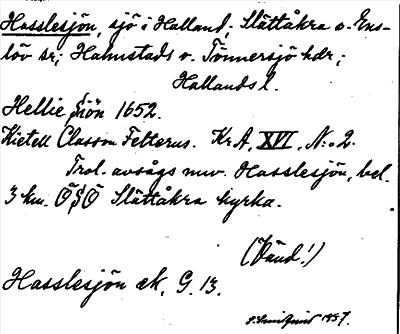 Hasslesjön, sjö i Halland; Slättåkra o. Ens-
löv sr; Halmstads o. Tönnersjö hdr;
Hallands l.
Hellie Siön 1652.
Kietell Classon Felterus. Kr.A, XVI, N:o 2.
Trol. avsågs nuv. Hasslesjön, bel.
3 km. ÖSÖ Slättåkra kyrka.
(Vänd!)
Hasslesjön ek. G. 13.
1957.